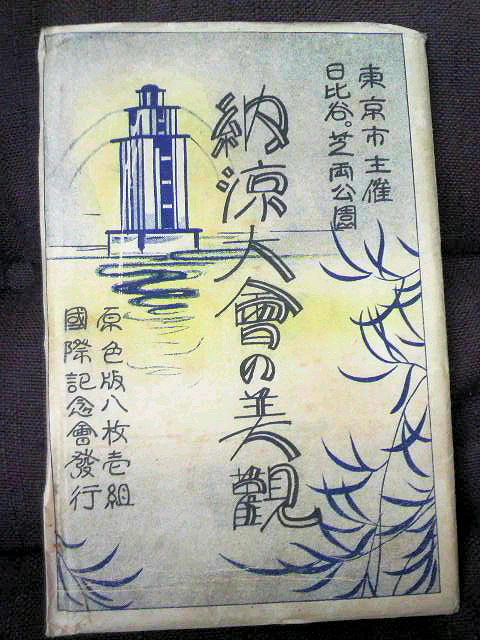 東京市主催
日比谷。芝両公園
納涼大會の美觀
原色版八枚壱組
國際記念會發行